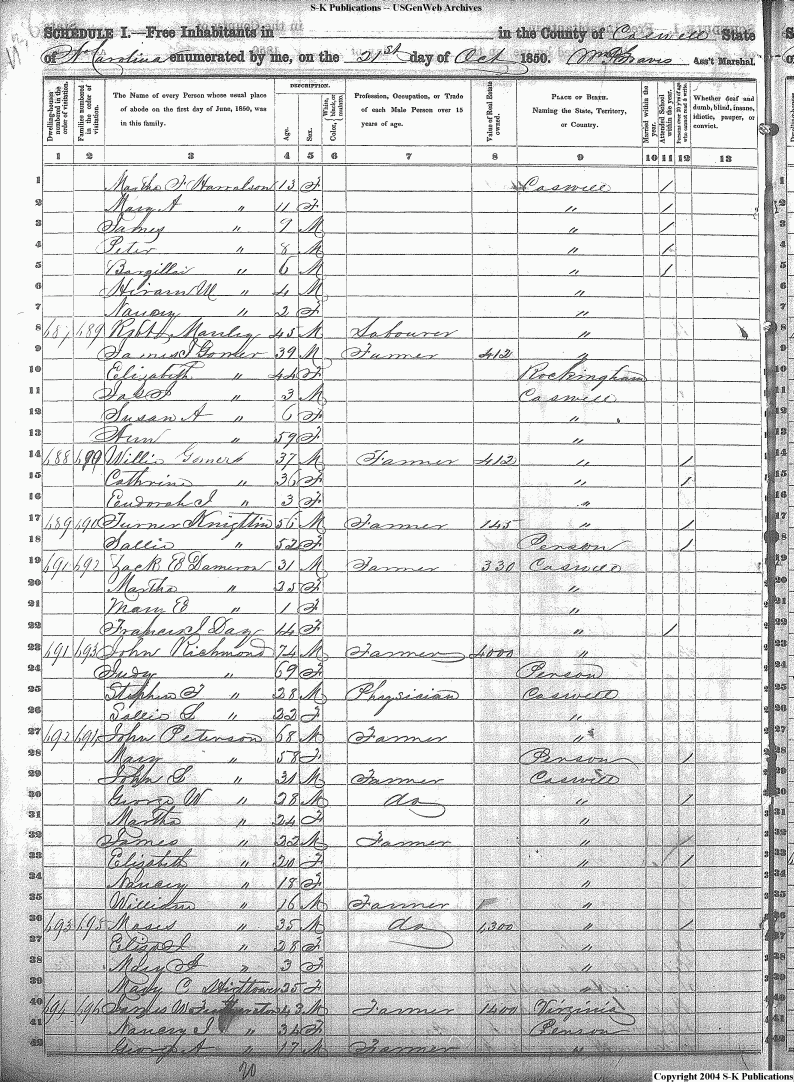 S-K Publications -- USGenWeb Archives
SCHEDULE I.—Free Inhabitants in in the County of Caswell State
of No Carolina enumerated by me, on the 21st day of Oct 1850. Wm Graves Ass't Marshal.
Dwelling-houses numbered in the order of visitation.
Families numbered in the order of visitation.
The Name of every Person whose usual place of abode on the first day of June, 1850, was in this family.
DESCRIPTION.
Age.
Sex.
Color, White, black, or mulatto.
Profession, Occupation, or Trade of each Male Person over 15 years of age.
Value of Real Estate owned.
PLACE OF BIRTH.
Naming the State, Territory, or Country.
Married within the year.
Attended School within the year.
Persons over 20 y'rs of age who cannot read & write.
Whether deaf and dumb, blind, insane, idiotic, pauper, or convict.
1 2 3 4 5 6 7 8 9 10 11 12 13
1 Martha F Harralson 13 F Caswell /
2 Mary A " 11 F " /
3 James " 9 M " /
4 Peter " 8 M " /
5 Bargillai " 6 M " /
6 Hiram M " 4 M "
7 Nancy " 2 F "
8 687 689 Manley 45 M Labourer "
9 James J Gomer 39 M Farmer 412 "
10 Elizabeth " 44 F Rockingham
11 " 3 M Caswell
12 Susan A " 6 F "
13 Ann " 59 F "
14 688 690 Willie Gomer 37 M Farmer 412 " /
15 Cathrine " 36 F " /
16 Eudorah J " 3 F "
17 689 691 Turner Knighten 56 M Farmer 145 " /
18 Sallie " 52 F Person /
19 691 692 Zack E Dameron 31 M Farmer 330 Caswell
20 Martha " 25 F "
21 Mary E " 1 F "
22 Francis J Day 14 F " /
23 691 693 John Richmond 74 M Farmer 4000 "
24 Judy " 69 F Person
25 Stephen F " 28 M Physician Caswell
26 Sallie S " 22 F "
27 692 694 John Peterson 68 M Farmer "
28 Mary " 58 F Person /
29 John S " 31 M Farmer Caswell
30 George W " 28 M do " /
31 Martha " 24 F "
32 James " 22 M Farmer "
33 Elizabeth " 20 F " /
34 Nancy " 18 F "
35 William " 16 M Farmer "
36 693 695 Moses " 35 M do 1,300 " /
37 Eliza J " 28 F "
38 Mary F " 3 F "
39 Mary C Hightower 25 F "
40 694 696 James W 43 M Farmer 1400 Virginia
41 Nancy J " 34 F Person
42 George A " 17 M Farmer "
20
Copyright 2004 S-K Publications